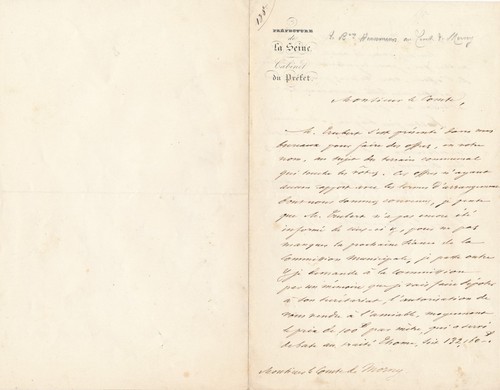 PRÉFECTURE
de
la Seine.
Cabinet
du Préfet.
Bon Haussmann au Comte de Morny
Monsieur le Comte,
M. s'est présenté dans mes
bureaux pour faire des offres, en votre
nom, au sujet du terrain communal
qui touche les vôtres. Ces offres n'ayant
aucun rapport avec les termes d'arrangement
dont nous sommes convenus, je pense
que M. n'a pas encore été
informé de ceux-ci et, pour ne pas
manquer la prochaine séance de la
Commission Municipale, je passe outre
et je demande à la Commission
par un mémoire que je vais faire déposer
à son Secrétariat, l'autorisation de
vous vendre à l'amiable, moyennant
le prix de par mètre, qui a servi
de base du traité
Monsieur le Comte de Morny